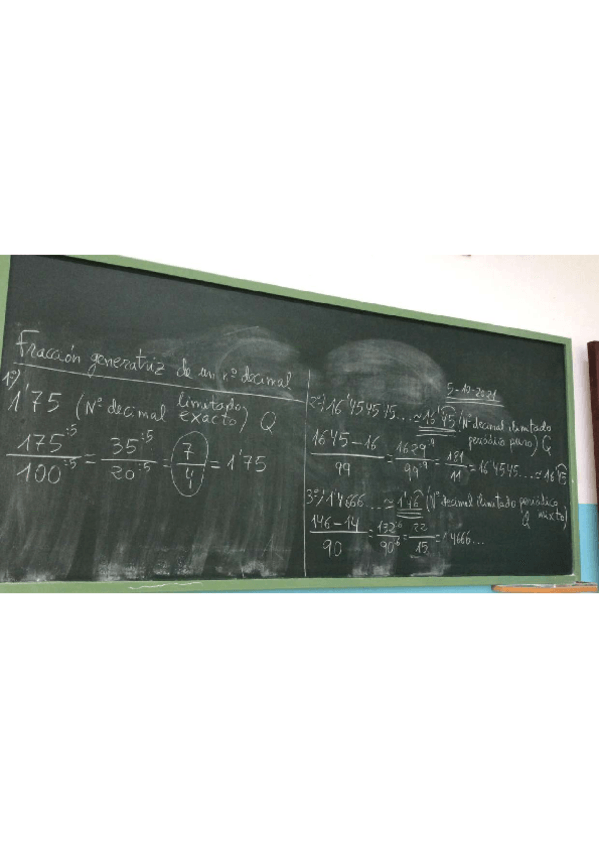 Fracción generatriz de un nº decimal
1º) 1'75 (Nº decimal limitado exacto) Q
175:5/100:5 = 35:5/20:5 = 7/4 = 1'75
5-10-2021
2º) 16'454545... ≃ 16'45 (Nº decimal ilimitado
periódico puro) Q
1645-16/99 = 1629:9/99:9 = 181/11 = 16'4545... ≃ 16'45
3º) 1'4666... ≃ 1'46 (Nº decimal ilimitado periódico
mixto) Q
146-14/90 = 132:6/90:6 = 22/15 = 1'4666...